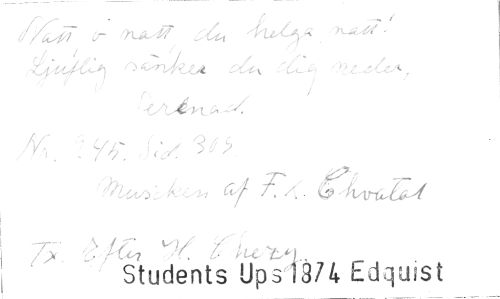 Natt ö natt, du helga natt!
Ljuflig sänker du dig neder,
Serenad.
Nr. 245. Sid. 309
Musiken af F. X. Chvatal
Tx. Efter H. Chezy.
Students Ups 1874 Edquist